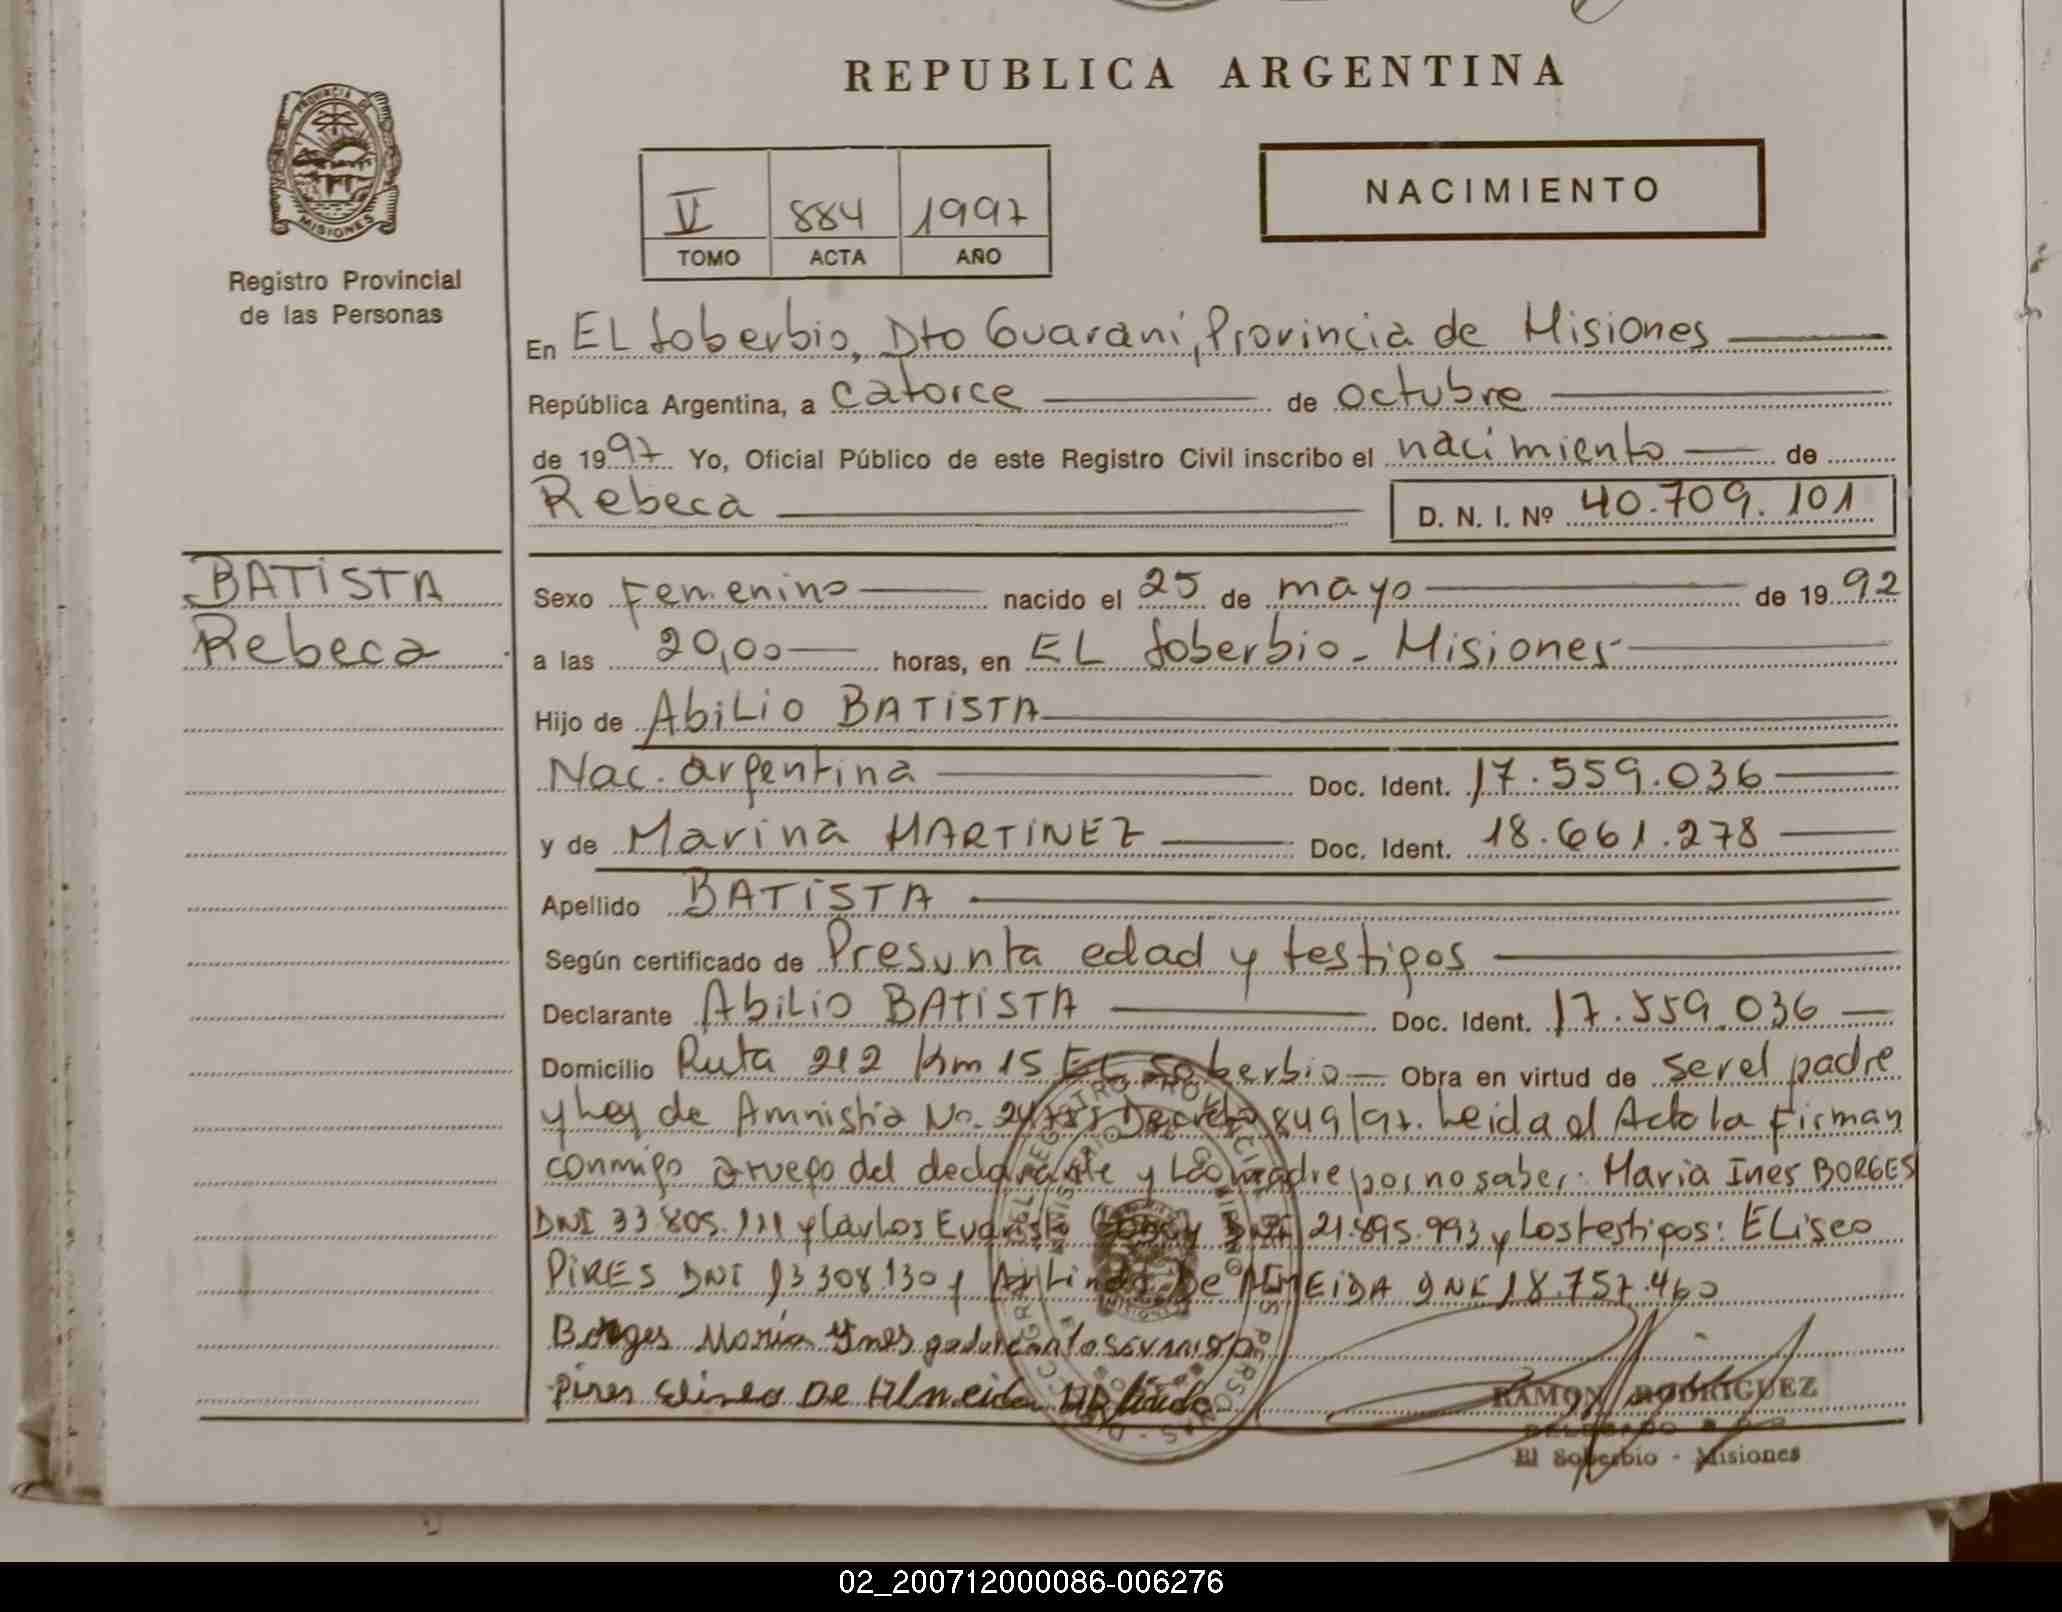 REPUBLICA ARGENTINA
PROVINCIA DE MISIONES
Registro Provincial
de las Personas
V 884 1997
TOMO ACTA AÑO
NACIMIENTO
En EL Soberbio, Dto Guaraní, Provincia de Misiones
República Argentina, a catorce de octubre
de 1997 Yo, Oficial Público de este Registro Civil inscribo el nacimiento de
Rebeca D. N. I. Nº 40.709.101
BATISTA
Rebeca
Sexo Femenino nacido el 25 de mayo de 1992
a las 20,00 horas, en EL Soberbio - Misiones
Hijo de Abilio BATISTA
Nac. argentina Doc. Ident. 17.559.036
y de Marina MARTINEZ Doc. Ident. 18.661.278
Apellido BATISTA
Según certificado de Presunta edad y testigos
Declarante Abilio BATISTA Doc. Ident. 17.559.036
Domicilio Ruta 212 Km 15 EL Soberbio Obra en virtud de ser el padre
y Ley de Amnistia No. Decreto 849/97. Leida el Acta la firman
conmigo a ruego del declarante y La madre por no saber: Maria Ines BORGES
DNI 33.805.111 y Carlos Evaristo DNI 21.895.993 y Los testigos: ELiseo
PIRES DNI 13 308.130 y Arlindo De ALMEIDA DNI 18.757.460
Borges Maria Ynes
Pires Eliseo De Almeida Arlindo
RAMON RODRIGUEZ
DELEGADO
El Soberbio - Misiones
02_200712000086-006276